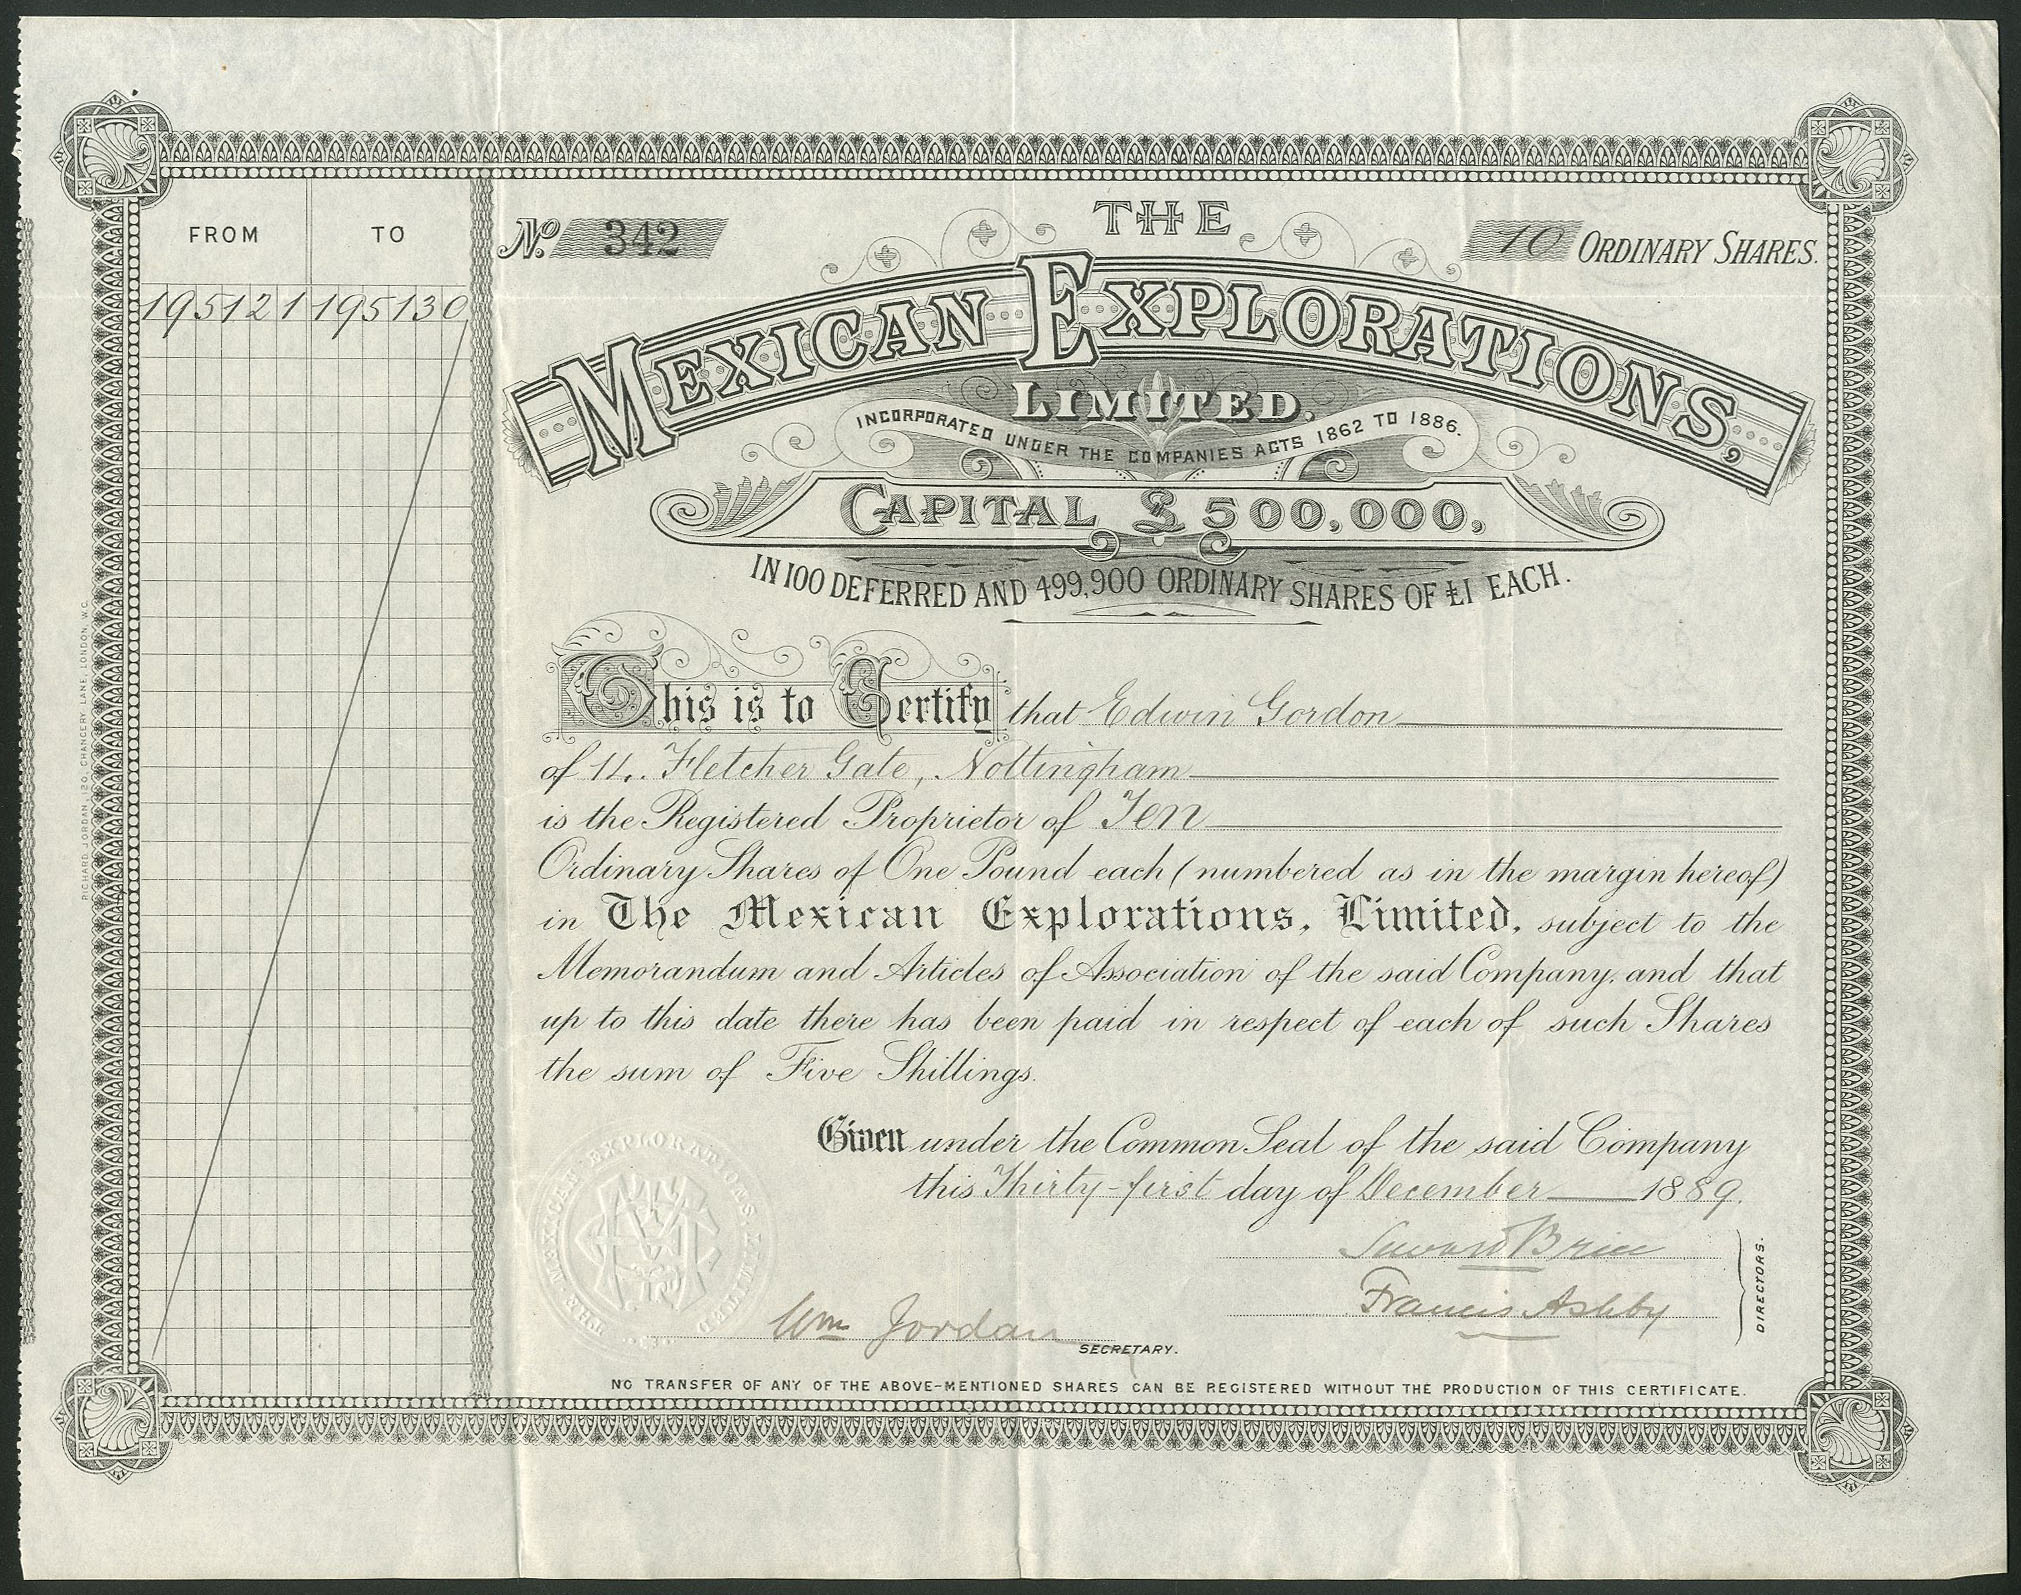 FROM TO
195121 195130
No. 342
10 ORDINARY SHARES.
THE
MEXICAN EXPLORATIONS,
LIMITED.
INCORPORATED UNDER THE COMPANIES ACTS 1862 TO 1886.
CAPITAL £500,000,
IN 100 DEFERRED AND 499,900 ORDINARY SHARES OF £1 EACH.
This is to Certify that Edwin Gordon
of 14. Fletcher Gate, Nottingham
is the Registered Proprietor of Ten
Ordinary Shares of One Pound each (numbered as in the margin hereof)
in The Mexican Explorations, Limited, subject to the
Memorandum and Articles of Association of the said Company, and that
up to this date there has been paid in respect of each of such Shares
the sum of Five Shillings.
Given under the Common Seal of the said Company
this Thirty-first day of December 1889.
Brice
Francis Ashby
DIRECTORS.
Wm Jordan
SECRETARY.
THE MEXICAN EXPLORATIONS. LIMITED
NO TRANSFER OF ANY OF THE ABOVE-MENTIONED SHARES CAN BE REGISTERED WITHOUT THE PRODUCTION OF THIS CERTIFICATE.
RICHARD JORDAN, 120, CHANCERY LANE, LONDON, W.C.